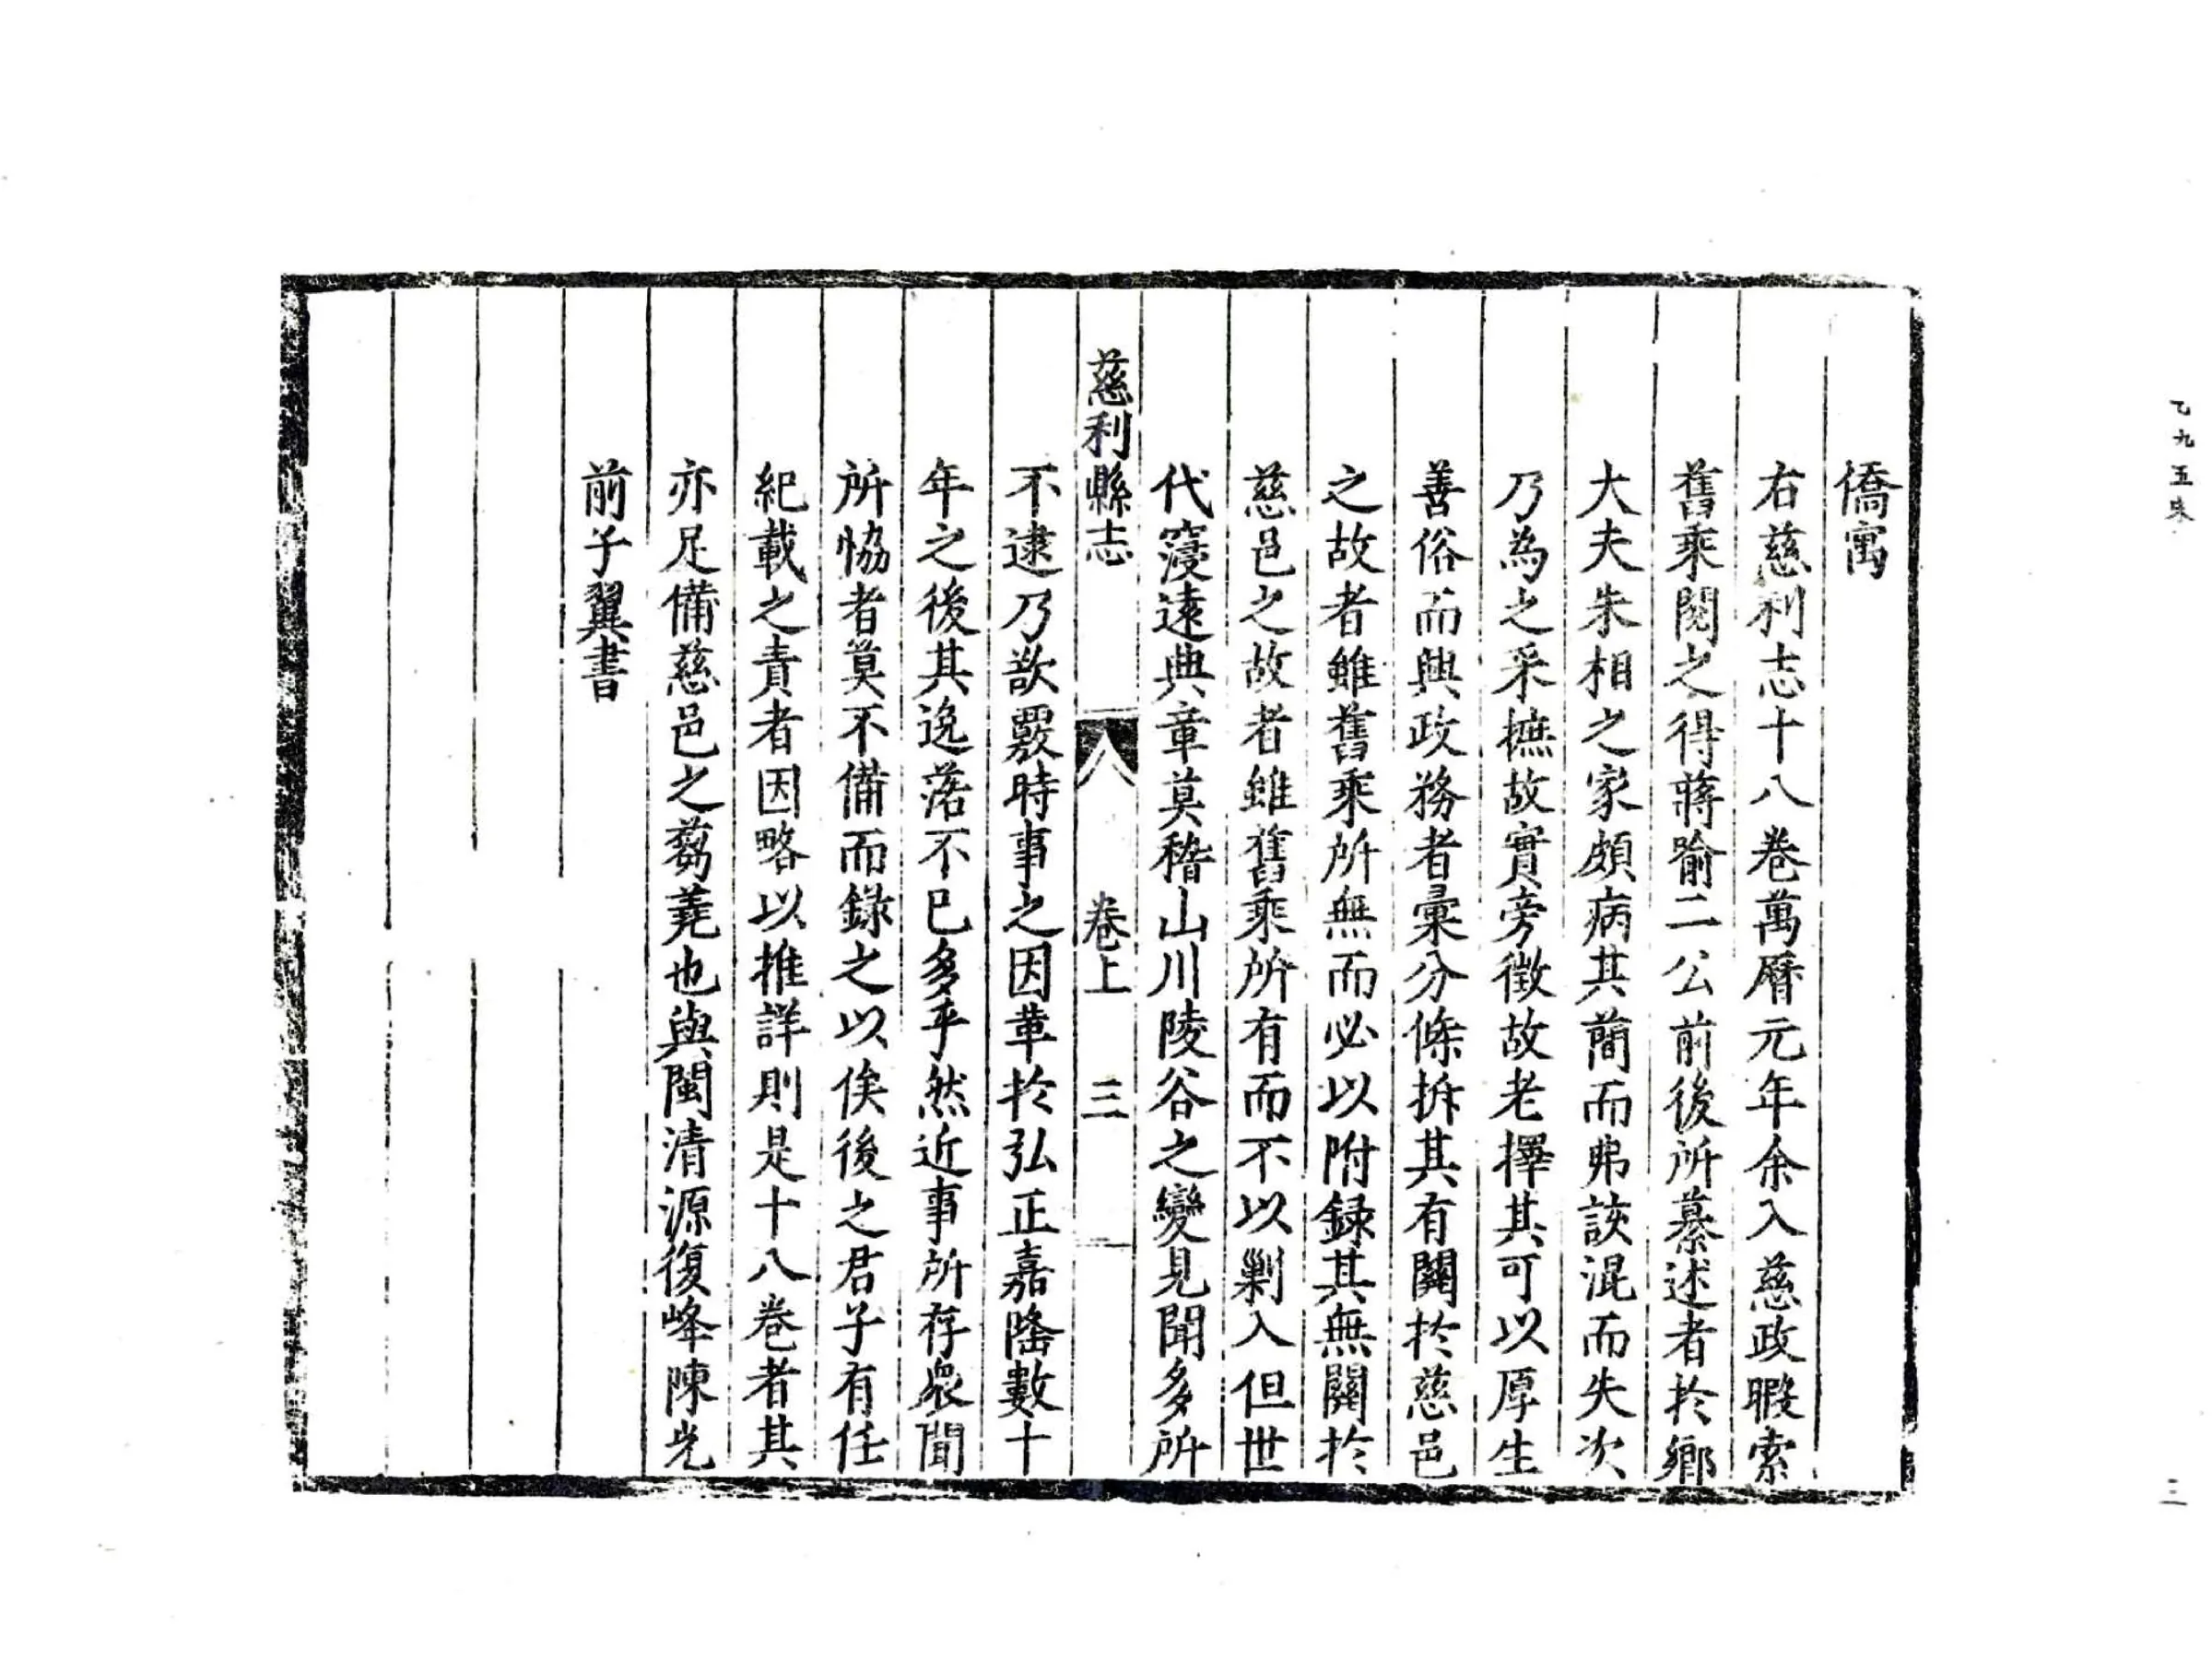 僑寓
右慈利志十八卷萬曆元年余入慈政暇索
舊乘閱之得蔣喻二公前後所纂述者於鄉
大夫朱相之家頗病其蕳而弗該混而失次
乃為之采摭故實旁徵故老擇其可以厚生
善俗而興政務者彙分條拆其有關於慈邑
之故者雖舊乘所無而必以附録其無關於
慈邑之故者雖舊乘所有而不以剿入但世
代寖遠典章莫稽山川陵谷之變見聞多所
慈利縣志 卷上 三
不逮乃欲覈時事之因革於弘正嘉隆數十
年之後其逸落不已多乎然近事所存衆聞
所恊者莫不備而録之以俟後之君子有任
紀載之責者因略以推詳則是十八卷者其
亦足備慈邑之蒭蕘也與閩清源復峰陳光
前子翼書
乙九五朱
三